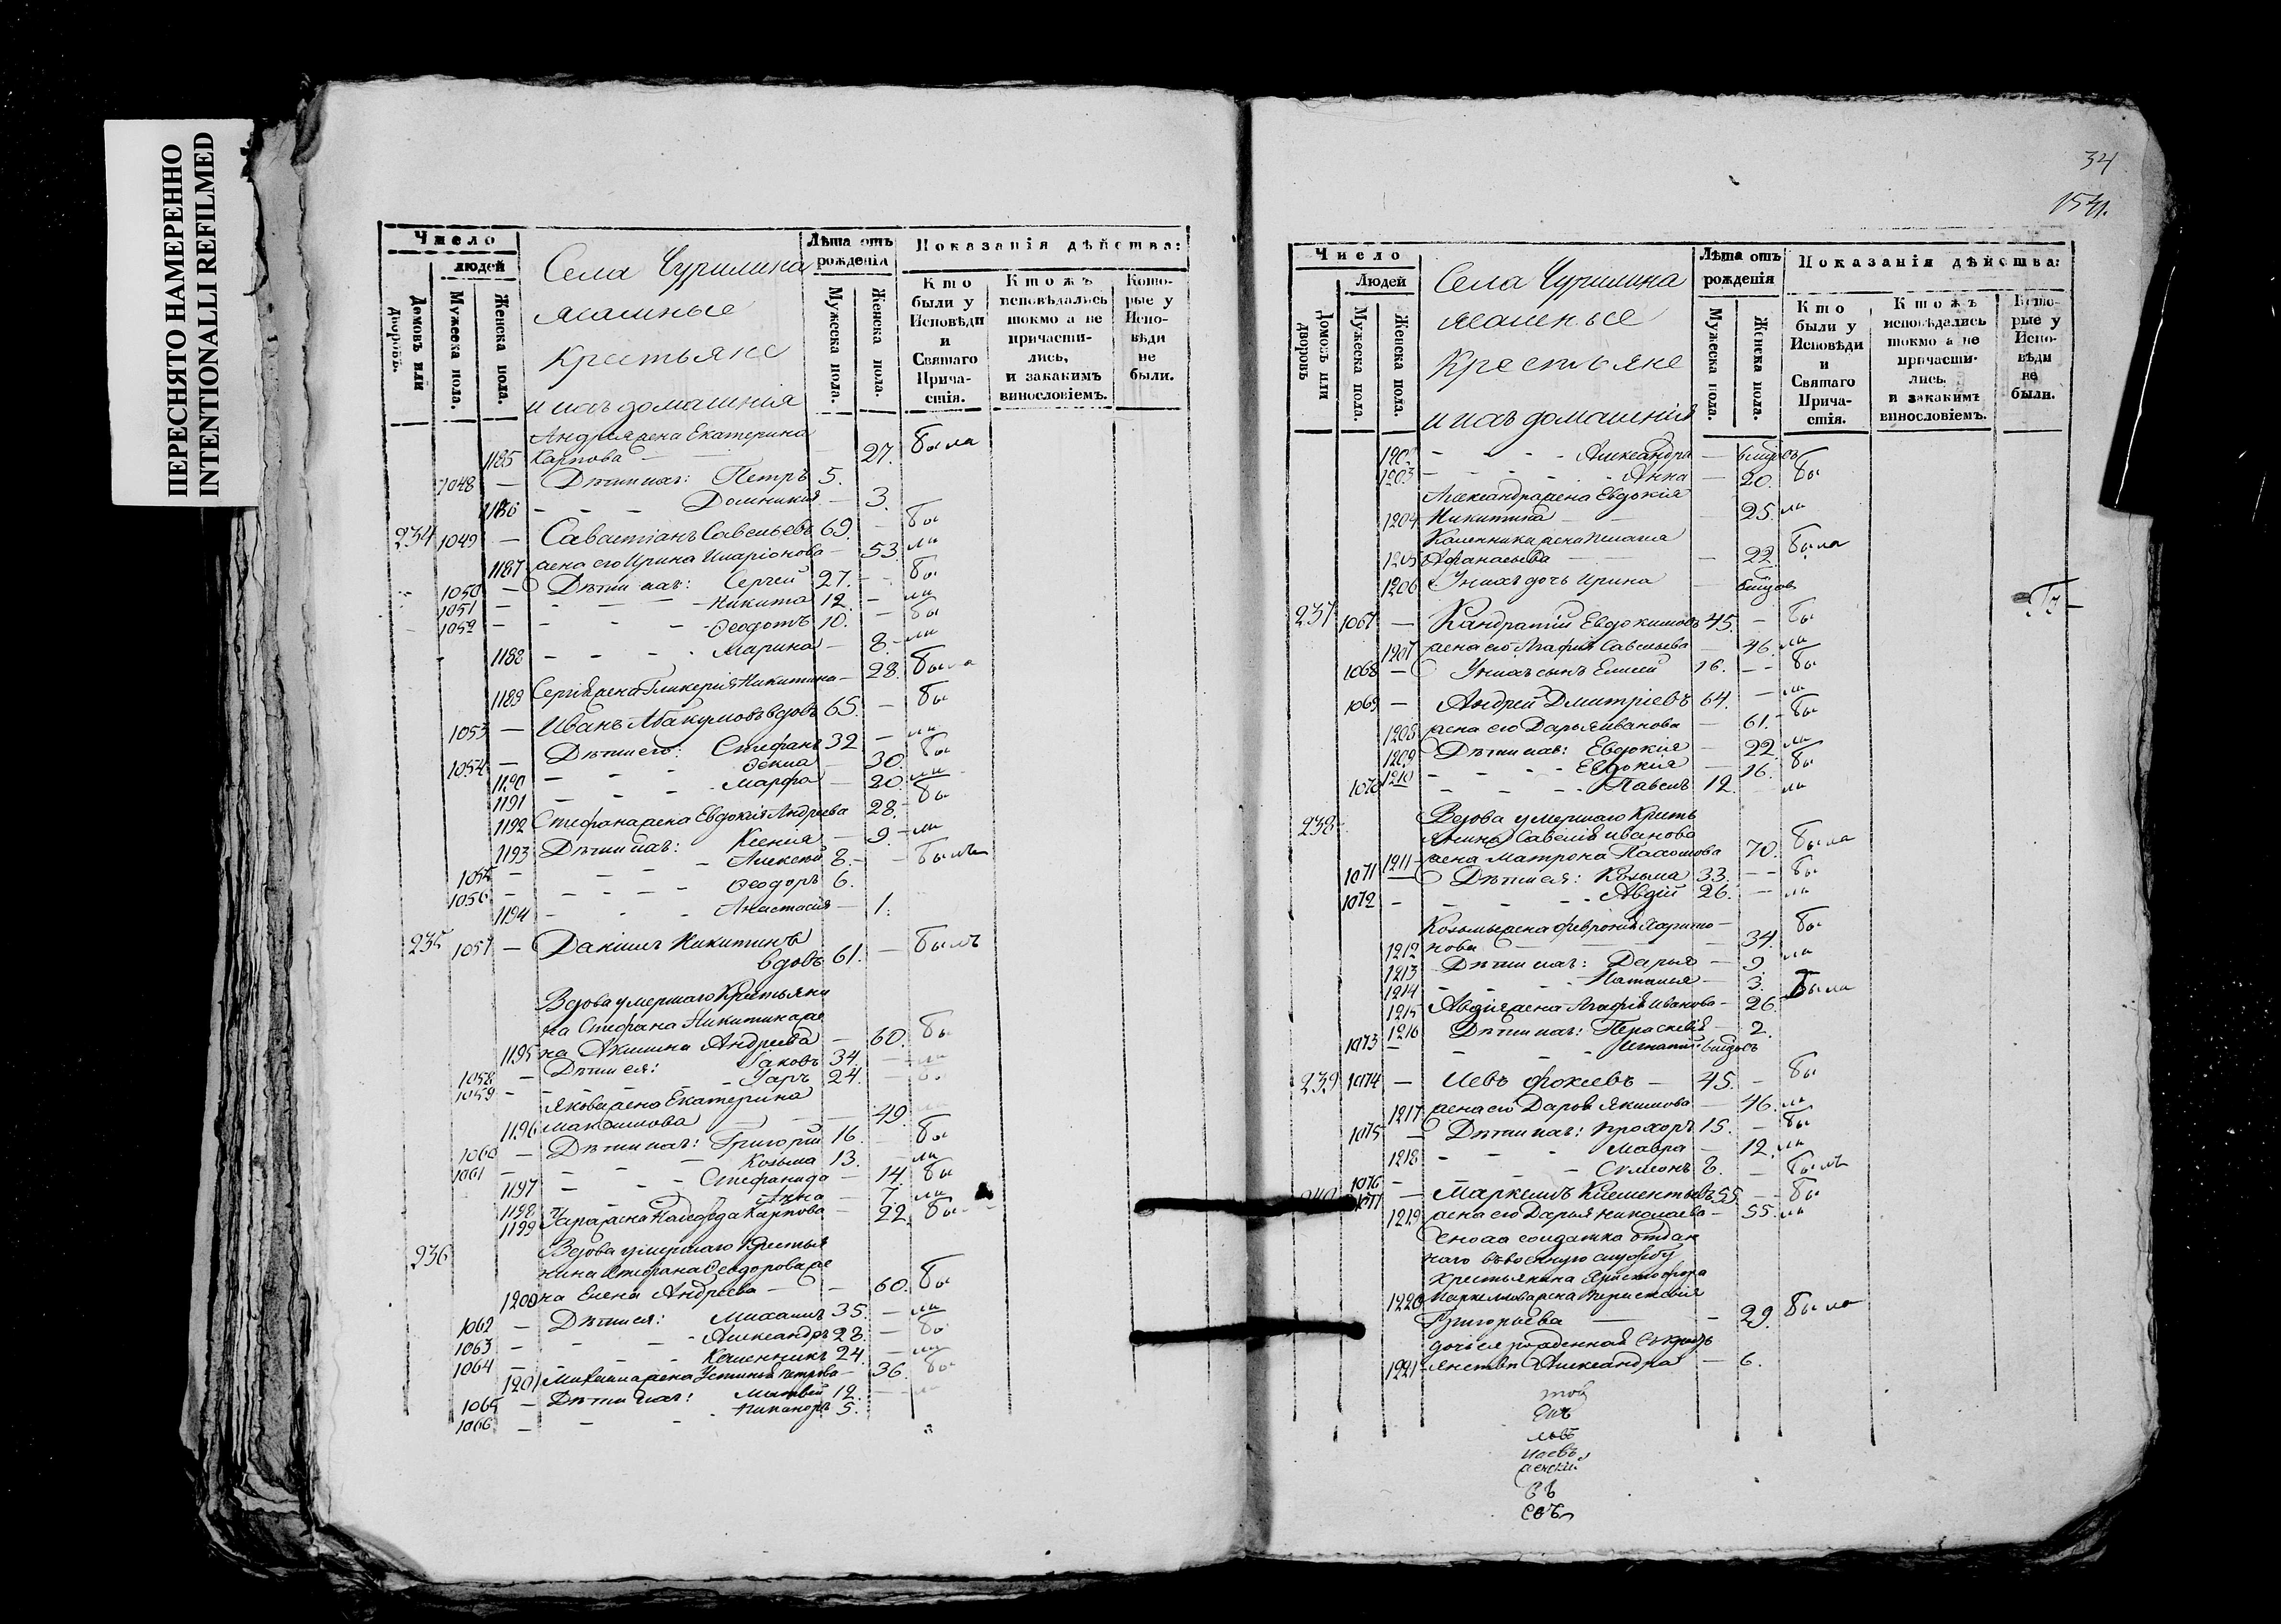 ПЕРЕСНЯТО НАМЕРЕННО
INTENTIONALLI REFILMED
Число
людей
Домовъ или дворовъ.
Мужеска пола.
Женска пола.
Села Чурилина
Ясашные
Крестьяне
и ихъ домашнія
Лѣта отъ рожденія
Мужеска пола.
Женска пола.
Показанія дѣйства:
Кто были у Исповѣди и Святаго Прича-стія.
Кто жъ исповѣдались токмо а не причасти-лись, и закакимъ винословіемъ.
Кото-рые у Испо-вѣди не были.
Андрея жена Екатерина
1185 Карпова — 27. была
1048 — Дѣти ихъ: Петръ 5.
1186 — Домникия — 3.
234 1049 — Савастіанъ Савельевъ 69. — бы
1187 жена его Ирина Иларіонова — 53. ли
1050 — Дѣти ихъ: Сергей 27. — бы
1051 — Никита 12. — ли
1052 — Ѳеодотъ 10. — бы
1188 — Марина — 8. ли
1189 Сергія жена Гликерія Никитина — 28. была
1053 — Иванъ Абакумовъ вдовъ 65. — бы
1054 — Дѣти его: Стефанъ 32 — ли
1190 — Ѳекла — 30. бы
1191 — Марфа — 20. ли
1192 Стефана жена Евдокія Андреева 28. бы
1193 Дѣти ихъ: Ксенія — 9. ли
1055 — Алексѣй 8. — былъ
1056 — Ѳеодоръ 6.
1194 — Анастасія — 1.
235 1057 — Даніилъ Никитинъ
вдовъ 61. — былъ
Вдова умершаго Крестьяни
на Стефана Никитина же
1195 на Акилина Андреева — 60. бы
1058 — Дѣти ея: Іаковъ 34. — ли
1059 — Уаръ 24. — бы
Якова жена Екатерина
1196 Максимова — 49. ли
1060 — Дѣти ихъ: Григорій 16. — бы
1061 — Козьма 13. — ли
1197 — Стефанида — 14. бы
1198 — Анна — 7. ли
1199 Уара жена Надежда Карпова — 22. бы
236 Вдова умершаго Крестья
нина Стефана Ѳеодорова же
1200 на Елена Андреева — 60. бы
1062 — Дѣти ея: Михаилъ 35. — ли
1063 — Александръ 28. — бы
1064 — Калинникъ 24. — ли
1201 Михаила жена Устинья Петрова — 36. бы
1065 — Дѣти ихъ: Матвѣй 12. — ли
1066 — Никаноръ 5.
34
Число
Людей
Домовъ или дворовъ
Мужеска пола.
Женска пола.
Села Чурилина
Ясашные
Крестьяне
и ихъ домашнія
Лѣта отъ рожденія
Мужеска пола.
Женска пола.
Показанія дѣйства:
Кто были у Исповѣди и Святаго Прича-стія.
Кто жъ исповѣдались токмо а не причасти-лись, и закакимъ винословіемъ.
Кото-рые у Испо-вѣди не были.
1202 — Александра —
1203 — Анна — 20. бы
Александра жена Евдокія
1204 Никитина — 25. ли
Калинника жена Пелагія
1205 Афанасьева — 22. была
1206 У нихъ дочь Ирина —
237 1067 — Кандратій Евдокимовъ 45. — бы
1207 жена его Агафія Савельева — 46. ли
1068 — У нихъ сынъ Елисей 16. — бы
1069 — Андрей Дмитріевъ 64. — ли
1208 жена его Дарья Иванова — 61. бы
1209 Дѣти ихъ: Евдокія — 22. ли
1210 — Евдокія — 16. бы
1070 — Павелъ 12. — ли
238 Вдова умершаго Кресть
янина Савелія Иванова
1211 жена Матрона Пахомова 70. была
1071 — Дѣти ея: Козьма 33. — бы
1072 — Авдій 26. — ли
Козьмы жена Февронія Харито
1212 нова — 34. бы
1213 Дѣти ихъ: Дарья — 9. ли
1214 — Наталья — 3.
1215 Авдія жена Агафія Иванова — 26. была
1216 Дѣти ихъ: Параскевія — 2.
1073 — Игнатій
239 1074 — Иевъ Фокіевъ — 45. — бы
1217 жена его Дарья Якимова — 46. ли
1075 — Дѣти ихъ: Прохоръ 15. — бы
1218 — Мавра — 12. ли
1076 — Сѵмеонъ 8. — былъ
240 1077 — Маркеллъ Климентьевъ 55. — бы
1219 жена его Дарья Николаева — 55. ли
Сноха солдатка отдан
наго въ военную службу
Крестьянина Христофора
1220 Маркеллова жена Параскевія
Григорьева — 29. была
дочь ея рожденная
1221 Александра — 6.